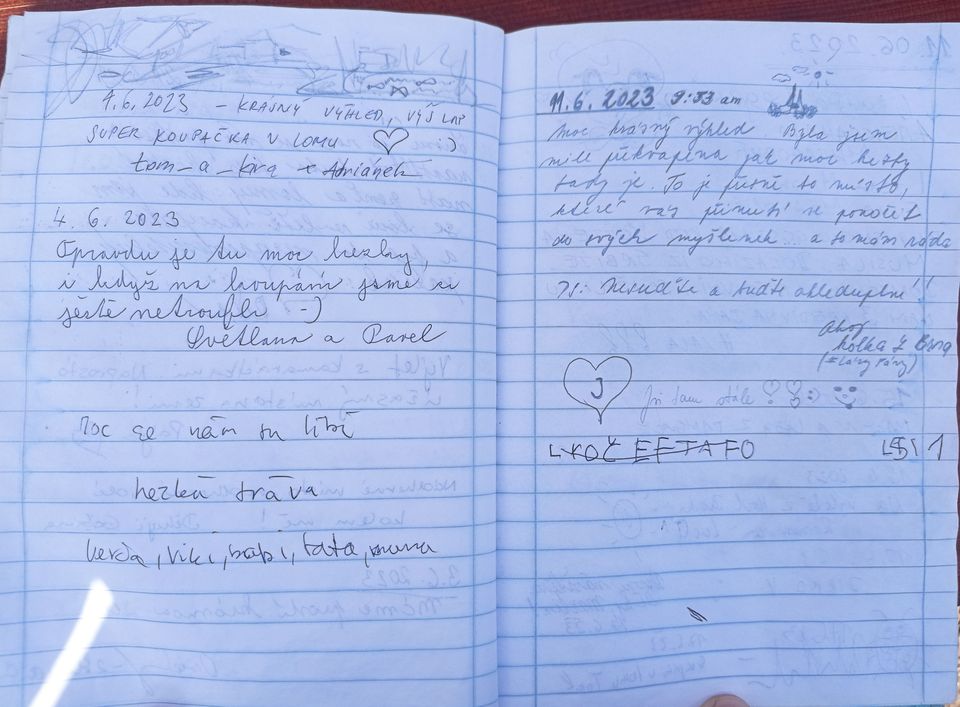 1.6.2023 - KRÁSNÝ VÝHLED, VÝŠ LAP
SUPER KOUPAČKA V LOMU :)
tom - a - kira + Adriánek
4. 6. 2023
Opravdu je tu moc hezky,
i když na koupání jsme si
ještě netroufli :-)
Světlana a Pavel
Moc se nám tu líbí
hezká tráva
verča, viki, babi, táta, mama
11.6. 2023 9:53 am
Moc krásný výhled. Byla jsem
mile překvapena jak moc hezky
tady je. To je přesně to místo,
které vás přinutí se ponořit
do svých myšlenek... a to mám ráda
PS: Nesuďte a buďte ohleduplní!!
Ahoj
holka z Brna
J
Jsi tam stále